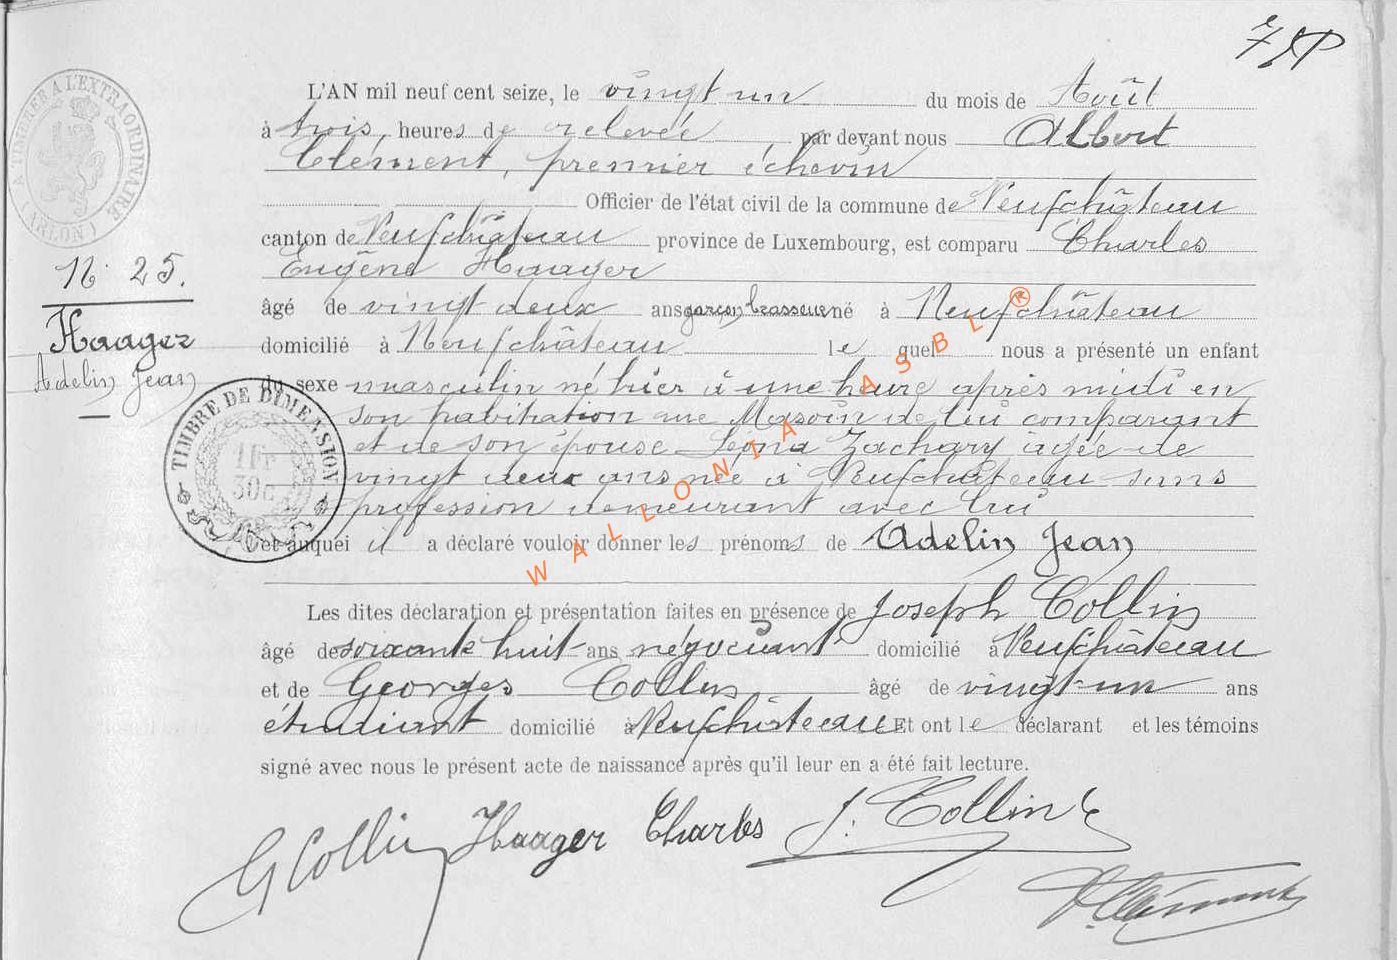 L'AN mil neuf cent seize, le vingt un du mois de Août
à trois heures de relevée, par devant nous Albert
Clément, premier échevin
Officier de l'état civil de la commune de Neufchâteau
canton de Neufchâteau province de Luxembourg, est comparu Charles
Eugène Haager
âgé de vingt deux ans garçon brasseur né à Neufchâteau
domicilié à Neufchâteau lequel nous a présenté un enfant
du sexe masculin né hier à une heure après midi en
son habitation rue de lui comparant
et de son épouse Léona Zachary agée de
vingt deux ans née à Neufchâteau sans
profession demeurant avec lui
et auquel il a déclaré vouloir donner les prénoms de Adelin Jean
Les dites déclaration et présentation faites en présence de Joseph Collin
âgé de soixante huit ans négociant domicilié à Neufchâteau
et de Georges Collin âgé de vingt-un ans
étudiant domicilié à Neufchâteau Et ont le déclarant et les témoins
signé avec nous le présent acte de naissance après qu'il leur en a été fait lecture.
G Collin Haager Charles J. Collin
A Clément
N° 25.
Haager
Adelin Jean
TIMBRER A L'EXTRAORDINAIRE
(ARLON)
TIMBRE DE DIMENSION
1 Fr
30c
WALLONIA ASBL ®